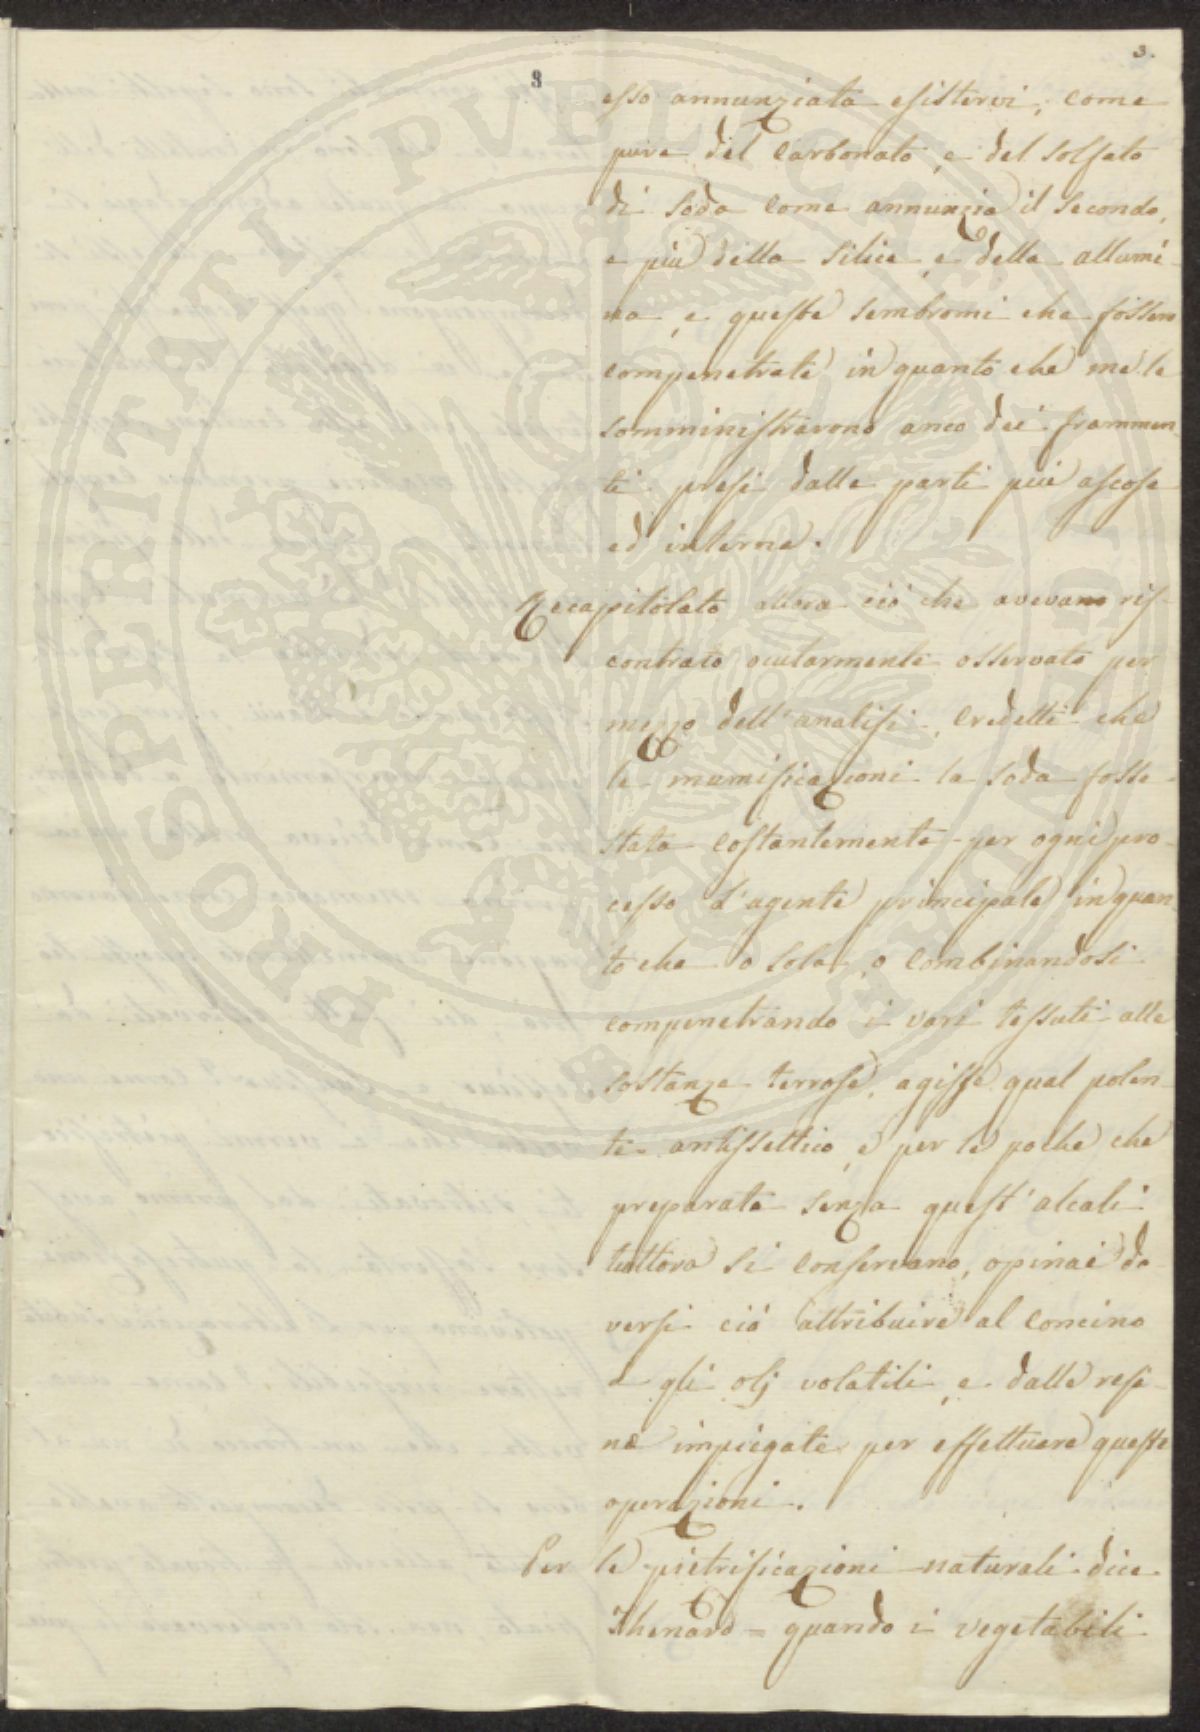 3.
8
esso annunziata esistervi, come
pure del Carbonato, e del solfato
di Soda come annunzia il Secondo,
e più della Silice, e della allumi
na, e queste sembromi che fossero
compenetrate in quanto che me le
somministrarono anco dei frammen
ti presi dalle parti più ascose
ed interne.
Recapitolato allora ciò che avevano ris-
contrato ocularmente osservato per
mezzo dell'analisi, credetti che
le mumificazioni la soda fosse
stata costantemente per ogni pro-
cesso l'agente principale in quan
to che o sola, o combinandosi
compenetrando i vari tessuti alle
sostanze terrose, agisse qual poten-
te antissettico, e per le poche che
preparate senza quest'alcali
tuttora si conservano, opinai do-
versi ciò attribuire al concino
e gli olj volatili, e dalle resi-
ne impiegate per effettuare queste
operazioni.
Per le pietrificazioni naturali dice
Thenard = quando i vegetabili
PROSPERITATI PVBLICAE AVGENDAE